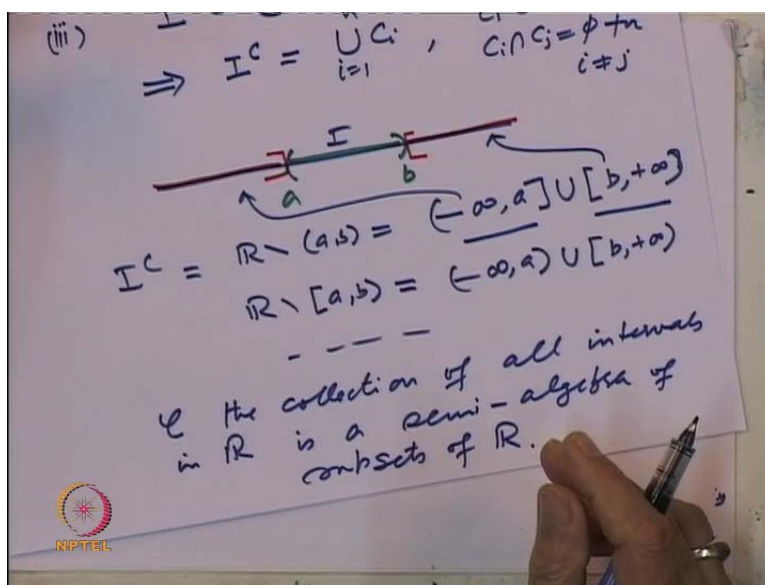 (iii)
⟹ I^C = ⋃_{i=1} C_i , C_i ∩ C_j = ϕ ∀ n
i ≠ j
I
a b
I^C = ℝ \ (a,b) = (-∞, a] ∪ [b, +∞)
ℝ \ [a,b) = (-∞, a) ∪ [b, +∞)
- - - -
𝒞 the collection of all intervals
in ℝ is a semi-algebra of
subsets of ℝ.
NPTEL